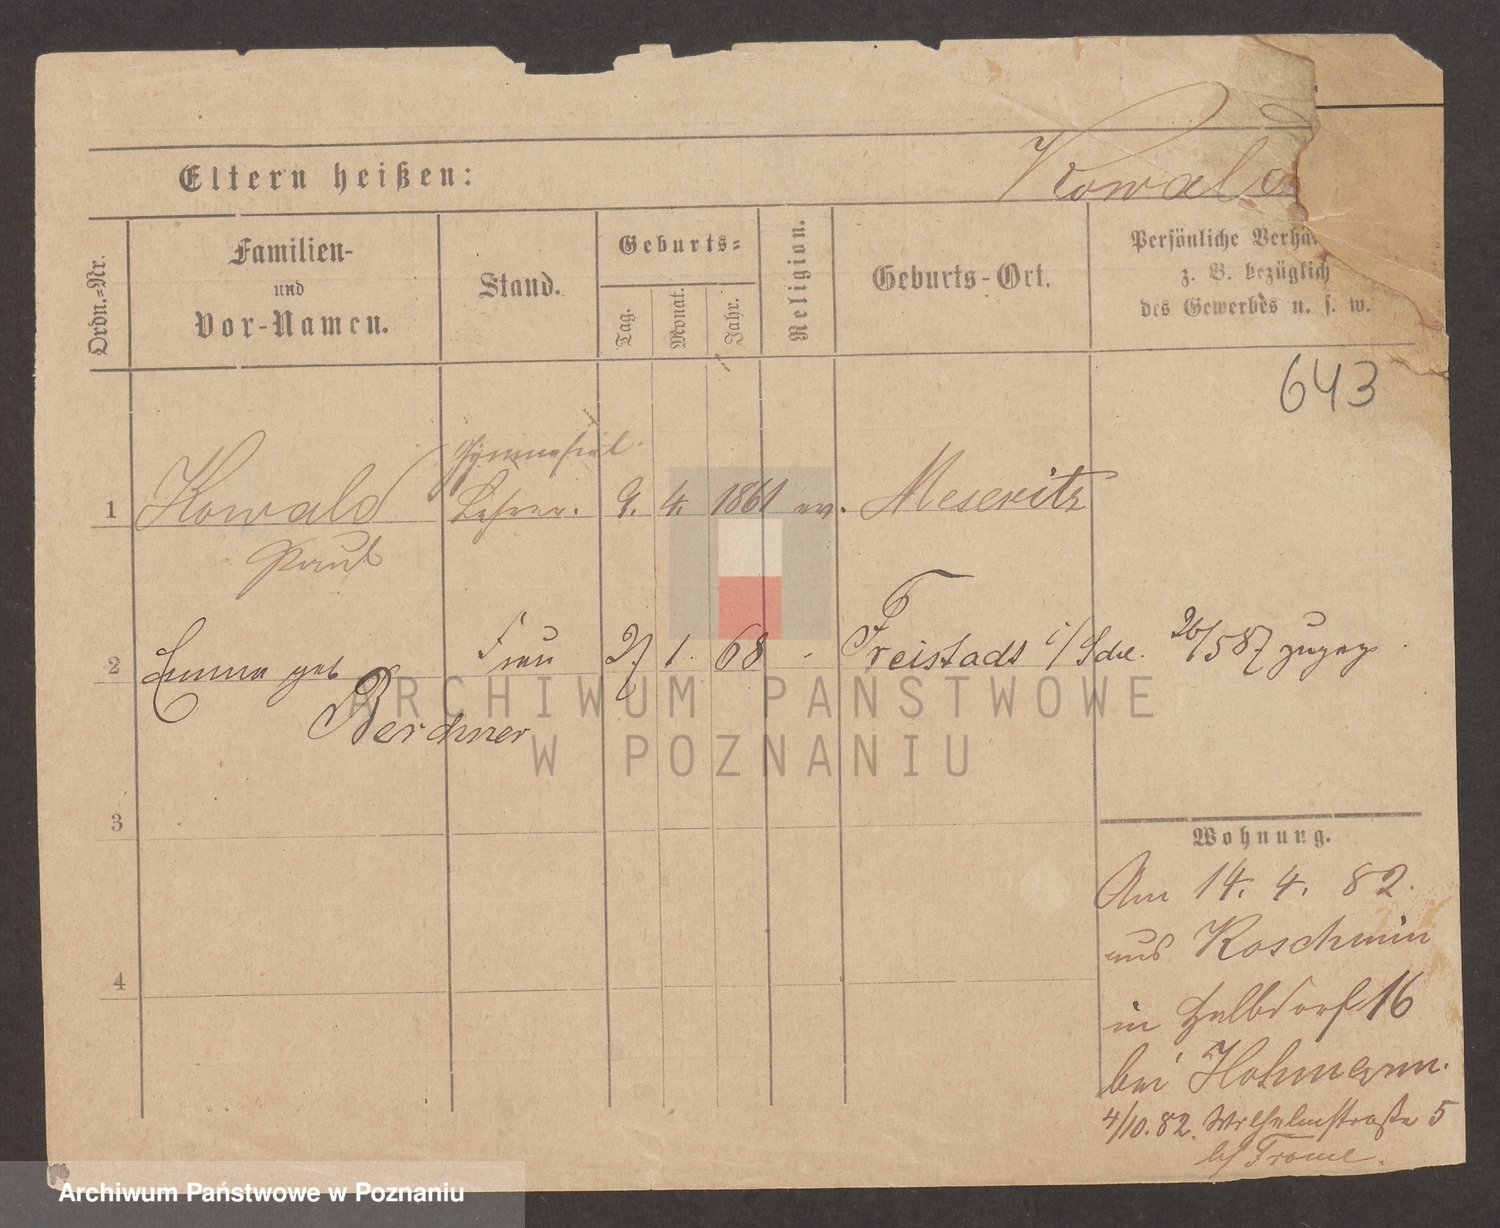 Kowald
Eltern heißen:
Ordn.=Nr.
Familien-
und
Vor-Namen.
Stand.
Geburts=
Tag.
Monat.
Jahr.
Religion.
Geburts-Ort.
Persönliche Verhä
z. B. bezüglich
des Gewerbes u. s. w.
643
1 Kowald Gymnasial
Lehrer. 9. 4. 1861 ev. Meseritz
Paul
2 Emma geb Frau 27 1. 68 Freistadt i/Schl. 26/5 87 zugez
Berchner
3
4
Wohnung.
Am 14. 4. 82.
aus Koschmin
in Halbdorf 16
bei Hohmann.
4/10. 82. Wilhelmstraße 5
b/ Frome.
ARCHIWUM PAŃSTWOWE
W POZNANIU
Archiwum Państwowe w Poznaniu